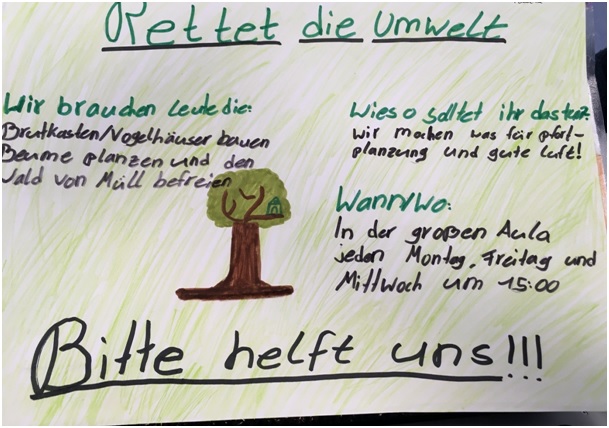 Rettet die Umwelt
Wir brauchen Leute die:
Brutkasten/Vogelhäuser bauen
Beume planzen und den
Wald von Müll befreien
Wieso solltet ihr das tun?:
Wir machen was für pfort-
planzung und gute Luft!
Wann/Wo:
In der großen Aula
jeden Montag, Freitag und
Mittwoch um 15:00
Bitte helft uns!!!